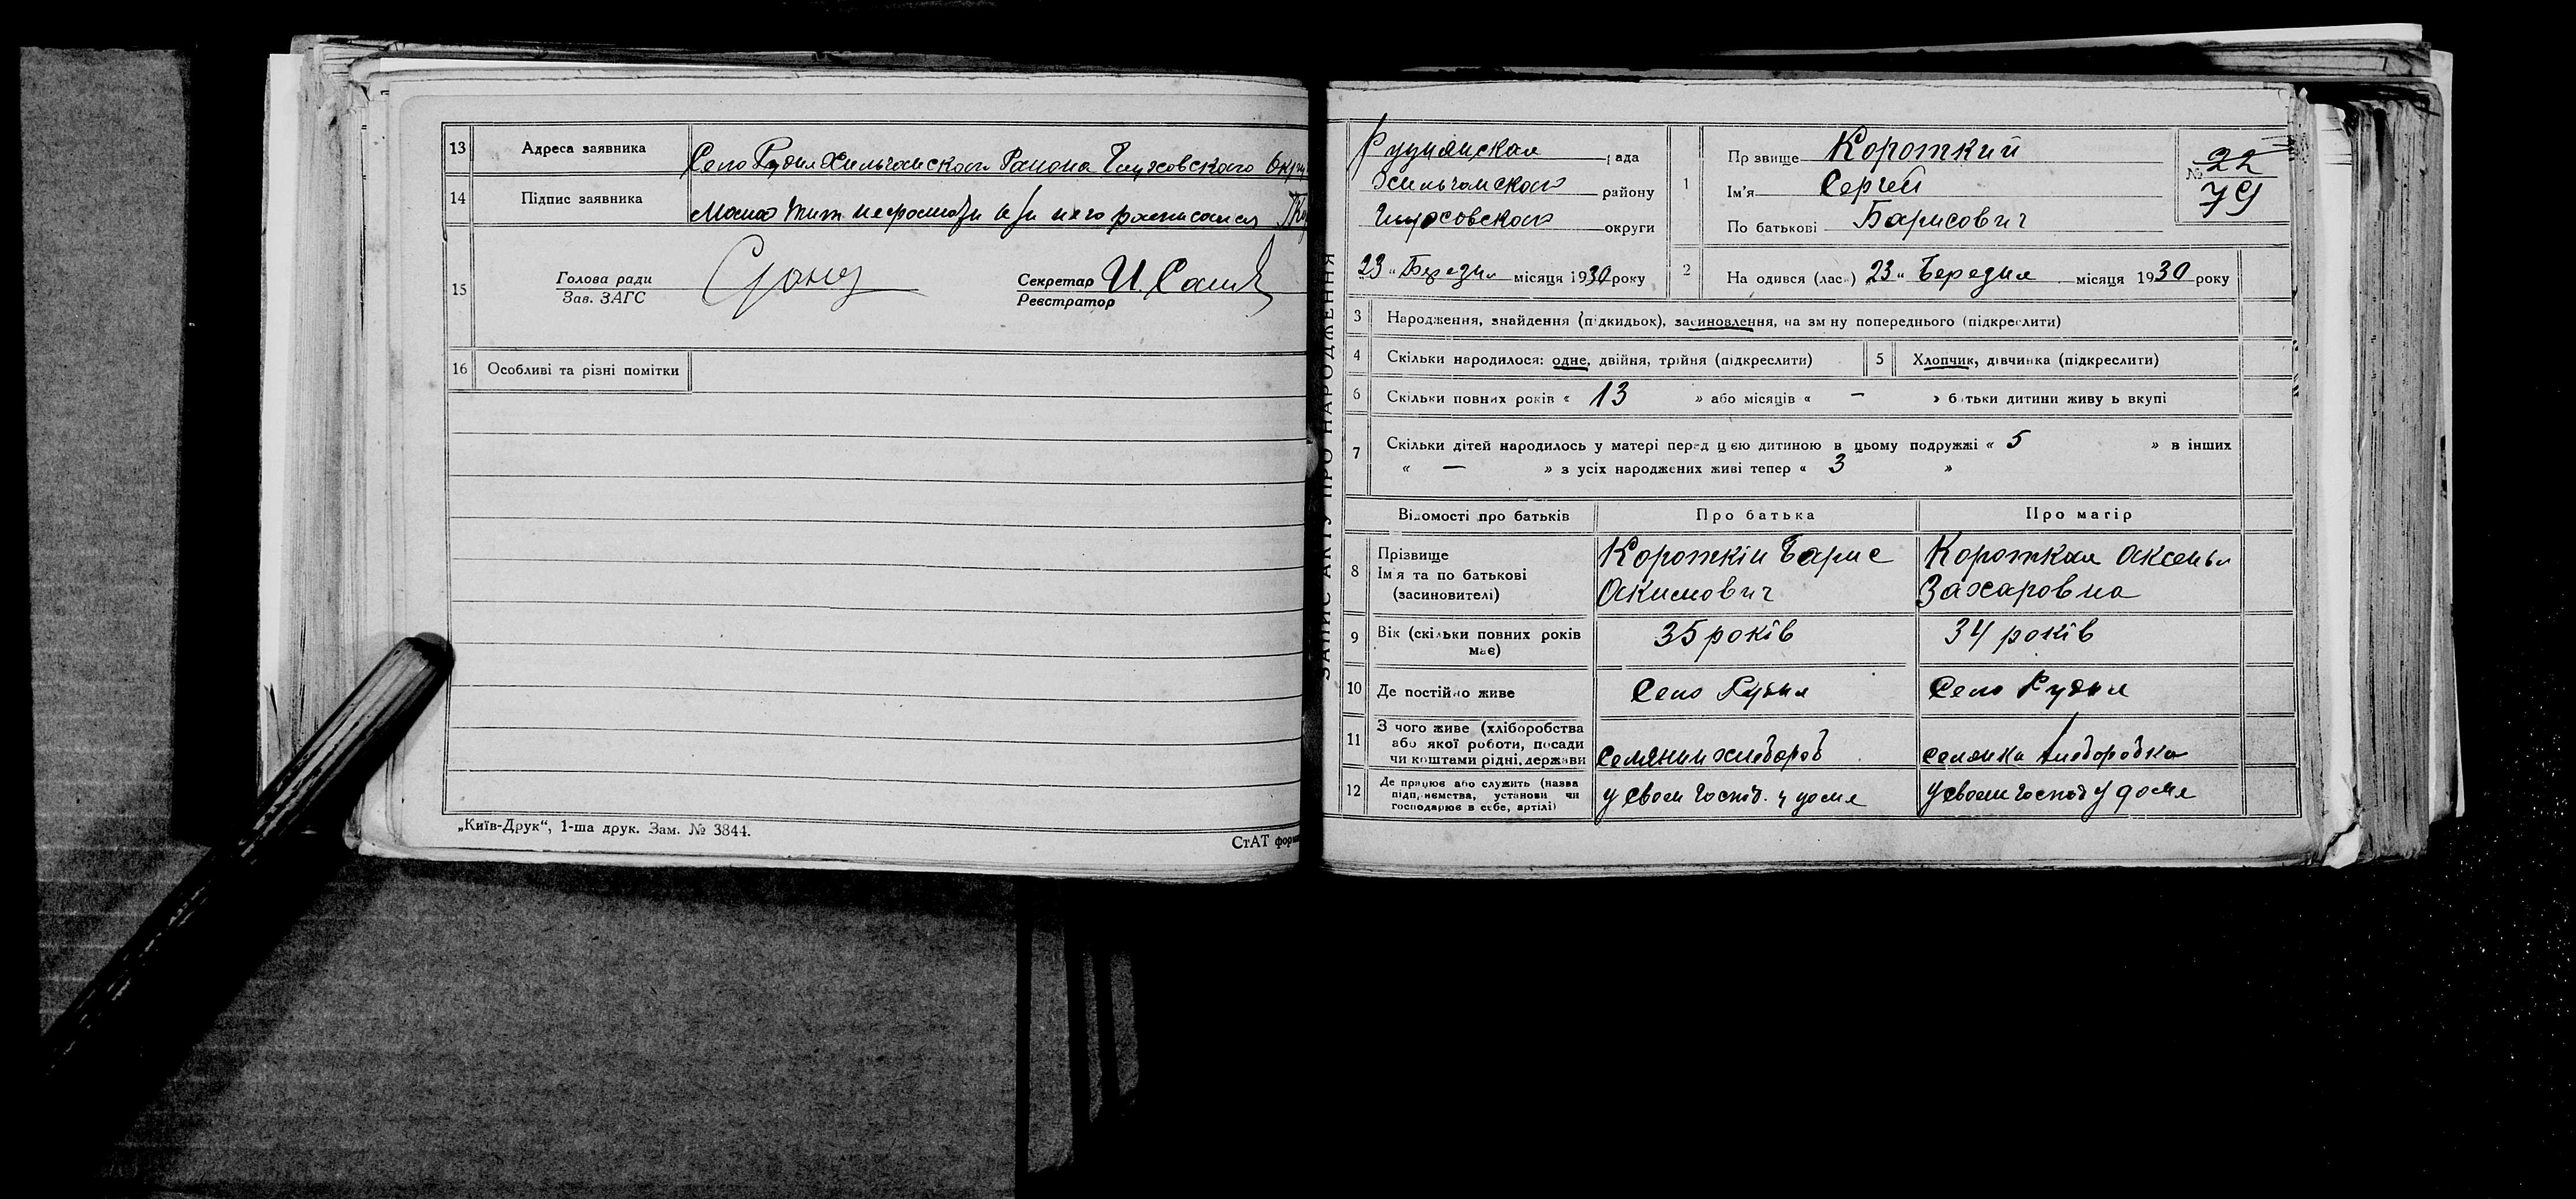 13 Адреса заявника Село Рудня Хильчанского Района Глуховского Окру
14 Підпис заявника
15 Голова ради Секретар И.
Зав. ЗАГС Реєстратор
16 Особливі та різні помітки
„Київ-Друк“, 1-ша друк. Зам. № 3844.
СтАТ форм
ЗАПИС АКТУ ПРО НАРОДЖЕННЯ
Руднянская рада
Хильчанского району
Глуховского округи
23 „ Березня місяця 1930 року
1 Прзвище Короткий
Ім'я Сергей
По батькові Барисович
№ 22
79
2 На одився (лась) 23 „ Березня місяця 1930 року
3 Народження, знайдення (підкидьок), засиновлення, на зміну попереднього (підкреслити)
4 Скільки народилося: одне, двійня, трійня (підкреслити) 5 Хлопчик, дівчинка (підкреслити)
6 Скільки повних років « 13 » або місяців « — » батьки дитини живуть вкупі
7 Скільки дітей народилось у матері перед цією дитиною в цьому подружжі « 5 » в інших
« — » з усіх народжених живі тепер « 3 »
Відомості про батьків Про батька Про матір
8 Прізвище
Ім'я та по батькові
(засиновителі)
Короткій Барис
Акимович
Короткая Аксенья
Захаровна
9 Вік (скільки повних років
має)
35 років 34 років
10 Де постійно живе Село Рудня Село Рудня
11 З чого живе (хліборобства
або якої роботи, посади
чи коштами рідні, держави
Селянин хлебороб селянка хлеборобка
12 Де працює або служить (назва
підприємства, установи чи
господарює в себе, артілі)
у своем господ. у доме у своем господ у доме